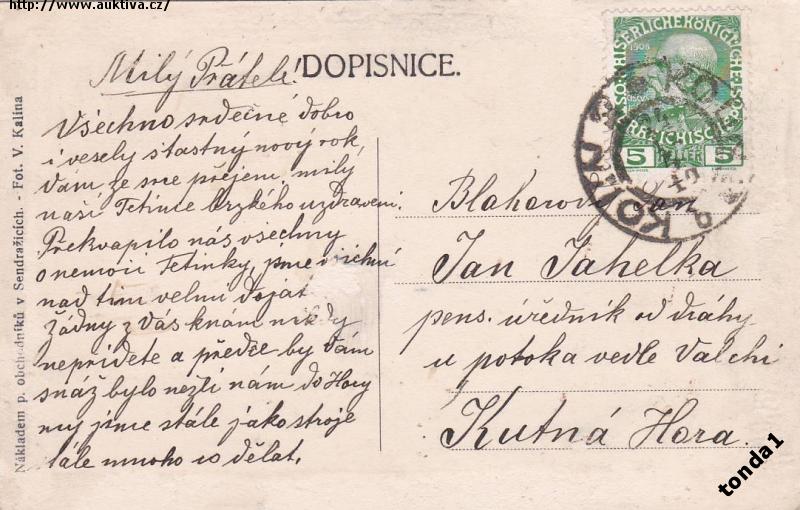 http://www.auktiva.cz/
Milý Prátelé
DOPISNICE.
Všechno srdečné dobro
i vesely štastný nový rok,
Vám ze srce přejem, milý
naší Tetince brzkého uzdravení.
Překvapilo nás všechny
o nemóci Tetinky, jsme všichni
nad tím velmi dojat
žádny z Vás knám nikdy
nepřidete a předce by Vam
snáz bylo nežli nám do Hory
my jsme stále jako stroje
tále mnoho co dělat.
Nákladem p. obchodníků v Sendražicích. - Fot. V. Kalina
KAISERLICHE KÖNIGLICHE ÖSTERREICHISCHE POST
1908
5 HELLER 5
KOLÍN
Blahorový Pan
Jan Jahelka
pens. úředník od dráhy
u potoka vedle Valchi
Kutná Hora.
tonda1